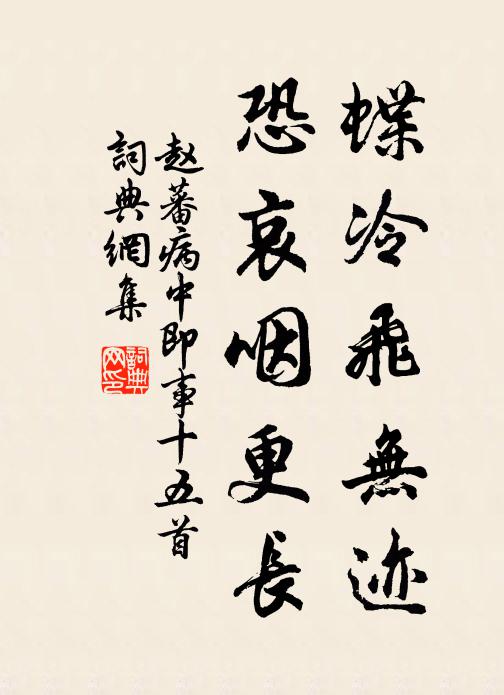 蝶冷飛無迹
恐哀咽更長
赵蕃病中即事十五首
詞典網集
詞典网印